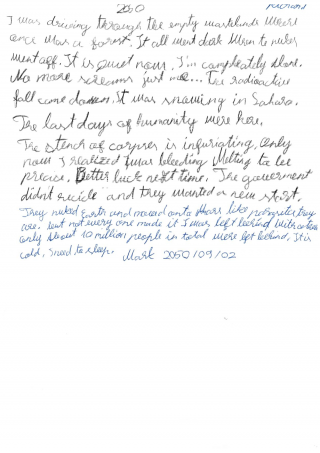 2050
I was driving through the empty wastelands where
once was a forest. It all went dark when to nukes
went off. It is quiet now, I'm completely alone.
No more screams just me... The radioactive
fall came down. It was snowing in Sahara.
The last days of humanity were here.
The stench of corpses is infuriating. Only
now I realized I was bleeding
preace. Better luck next time. The government
didnt and they wanted a new start.
They nuked Earth and moved onto Mars like they
are, but not every one made it I was left behind with
only about 10 million people in total were left behind. It is
cold, I need to sleep. Mark 2050/09/02